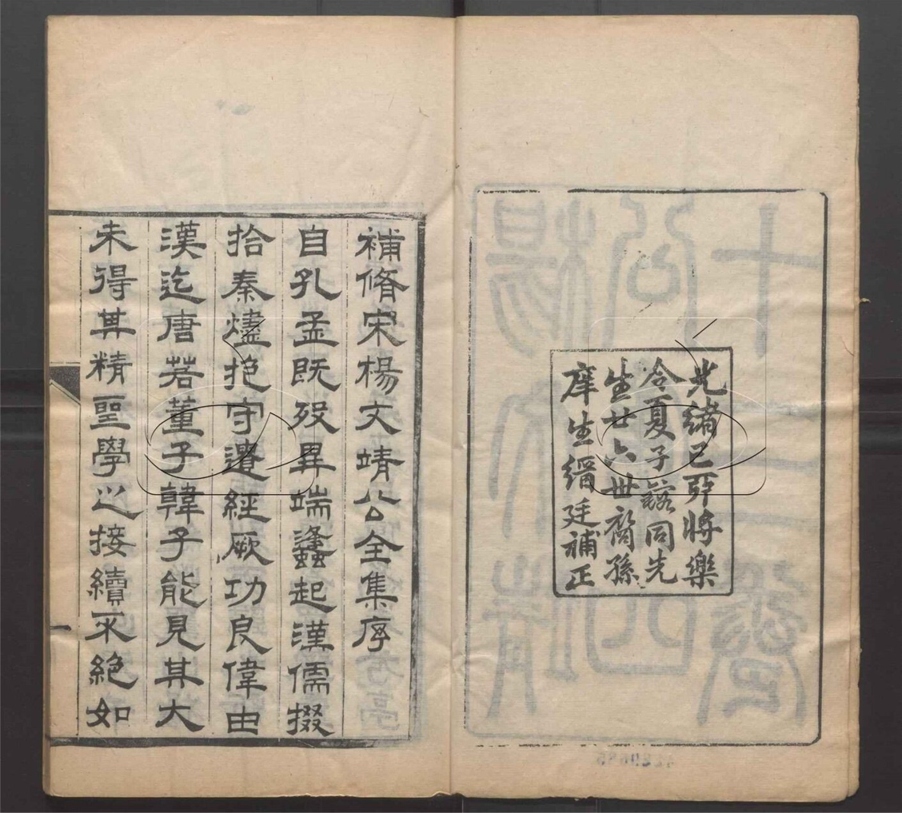 光緒己卯將樂
令夏子鎔同先
生廿六世裔孫
庠生縉廷補正
補脩宋楊文靖公全集序
自孔孟既歿異端蠭起漢儒掇
拾秦燼抱守遺經厥功良偉由
漢迄唐若董子韓子能見其大
未得其精聖學之接續不絕如
一